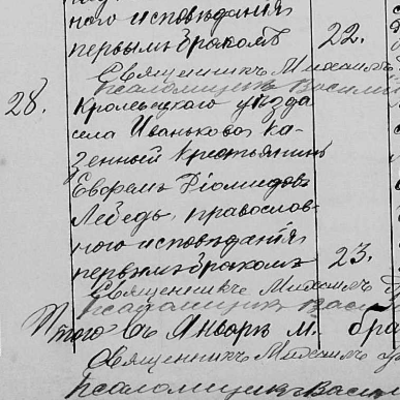 ного исповѣданія
первымъ бракомъ 22.
Священникъ Михаилъ
Псаломщикъ Василій
28. Кролевецкого уѣзда
села Иванькова ка-
зенный крестьянинъ
Евфремъ Діомидовъ
Лебедь, православ-
ного исповѣданія
первымъ бракомъ 23.
Священникъ Михаилъ
Псаломщикъ Васи
Итого въ Январѣ м. бра
Священникъ Михаилъ
Псаломщикъ Васил